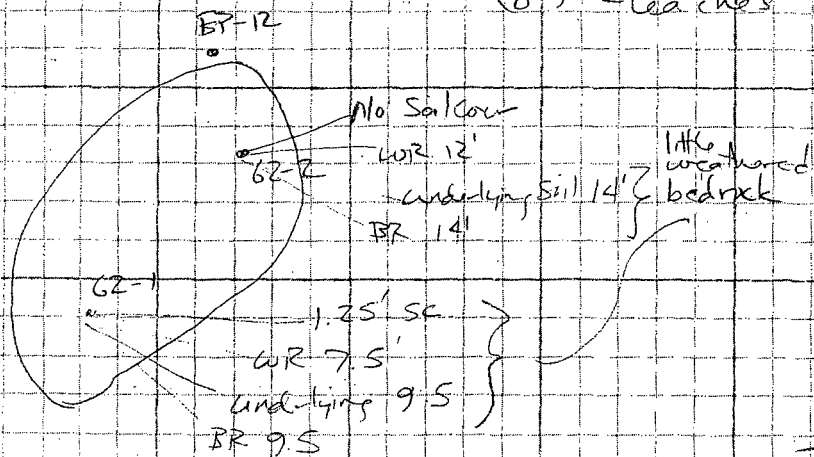 - leaches
EP-12
No Soil cover
62-2
WR 12'
underlying Soil 14'
BR 14'
little weathered bedrock
62-1
1.25' SC
WR 7.5'
underlying 9.5
BR 9.5